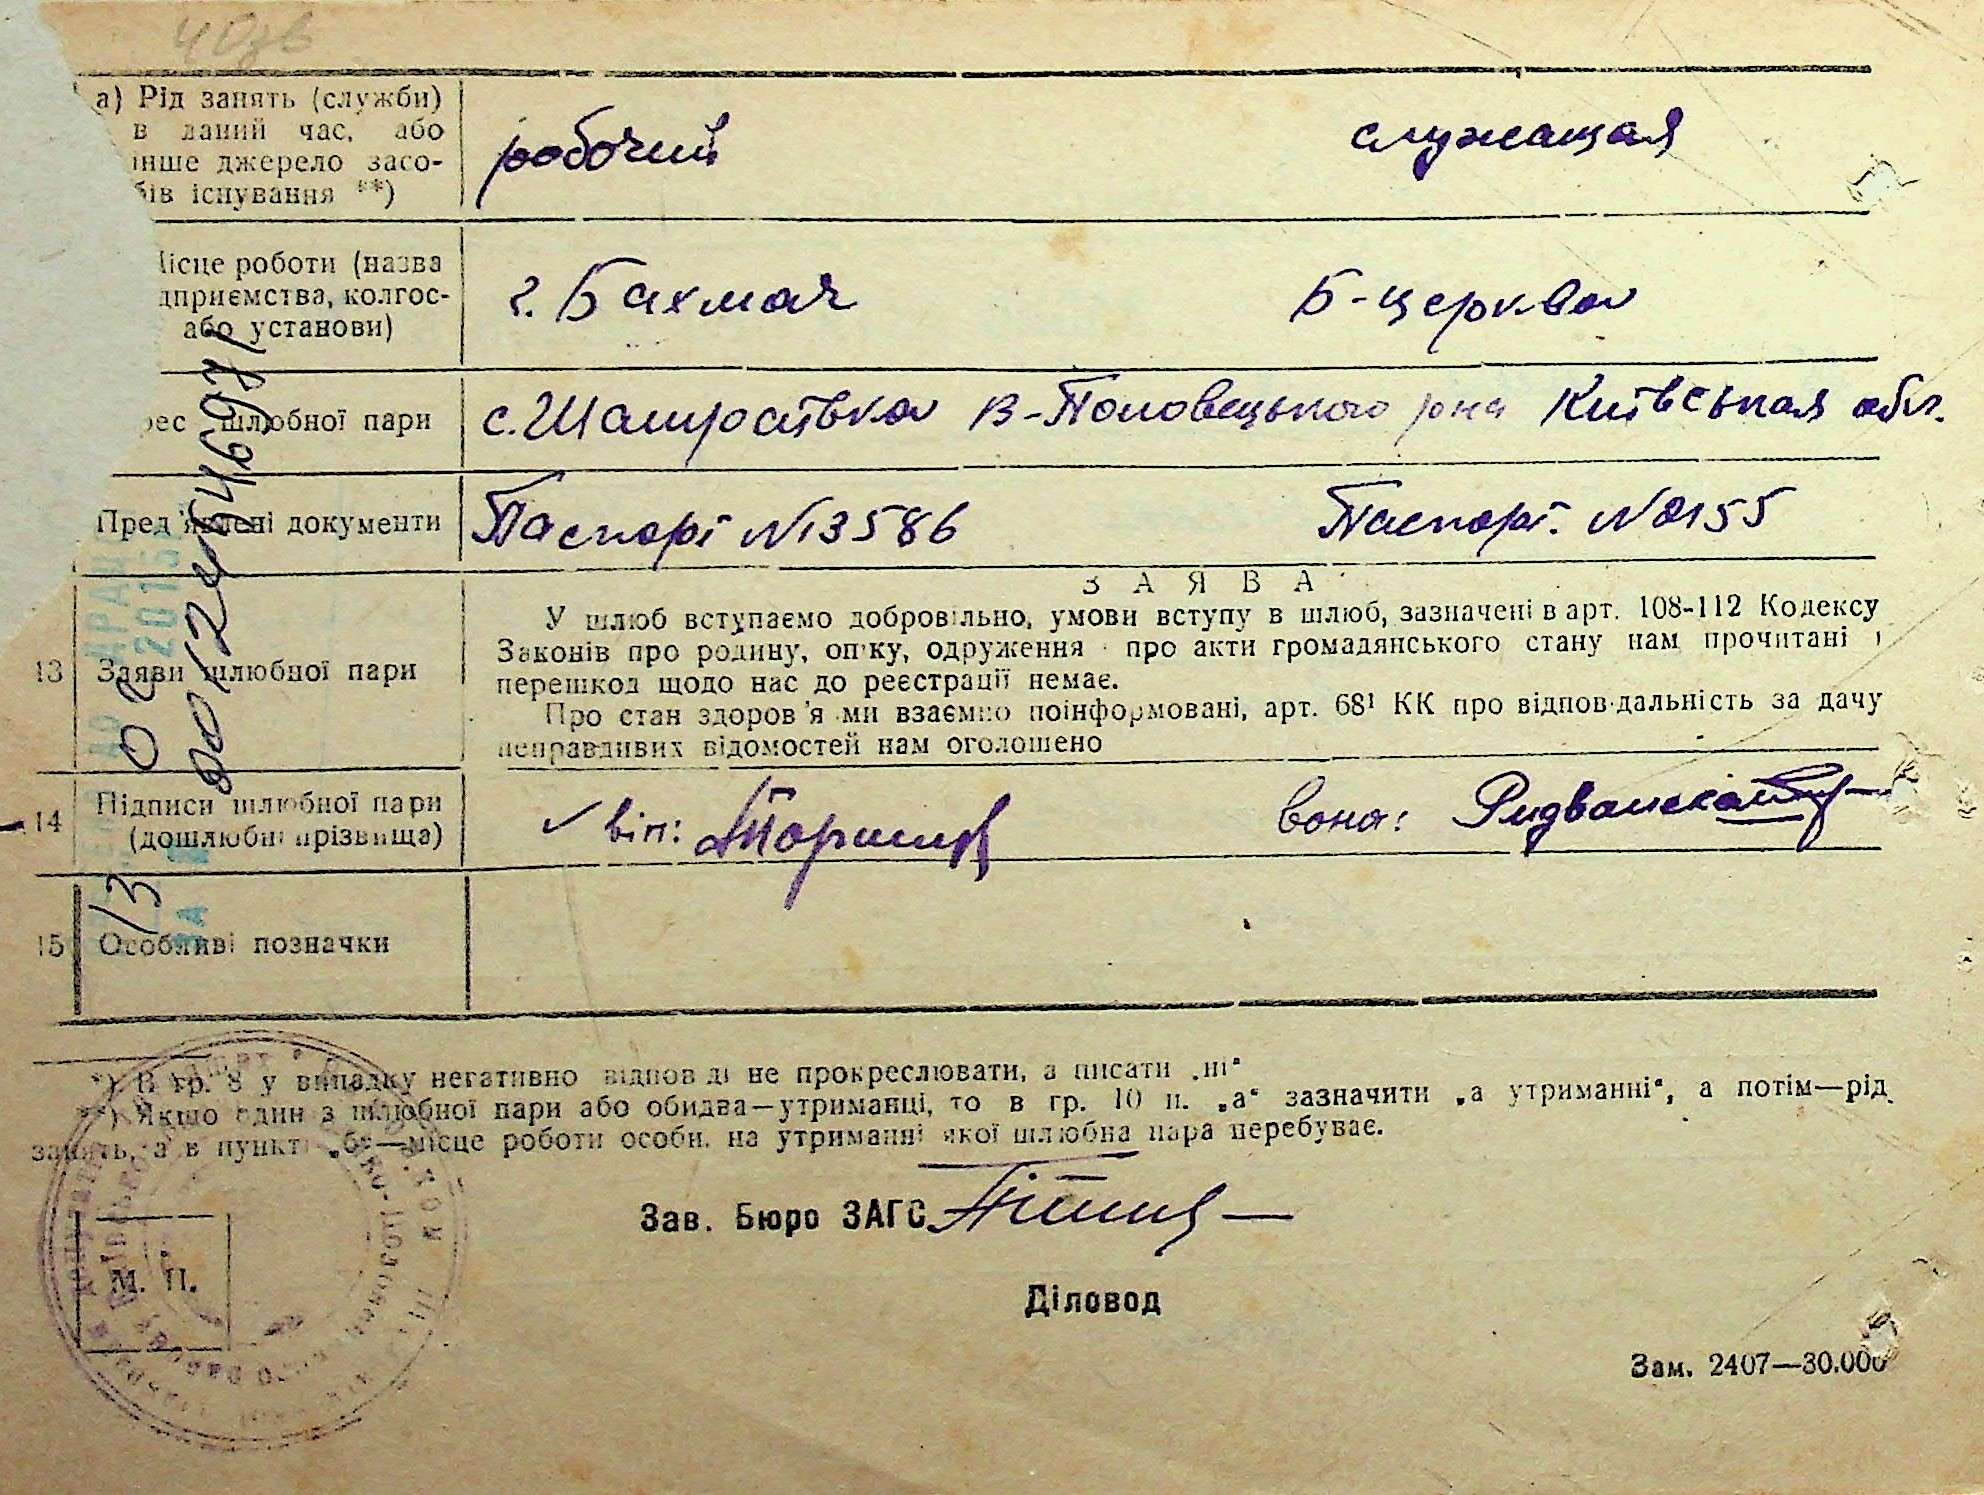 а) Рід занять (служби)
в даний час, або
інше джерело засо-
бів існування **)
робочий
служащая
ісце роботи (назва
дприємства, колгос-
або установи)
г. Бахмач
Б-церква
рес шлюбної пари
с. Шамраївка В-Половецького р-на Київськая обл.
Пред'явлені документи
Паспорт №13586
Паспорт. №2155
13
Заяви шлюбної пари
ЗАЯВА
У шлюб вступаємо добровільно, умови вступу в шлюб, зазначені в арт. 108-112 Кодексу
Законів про родину, опіку, одруження і про акти громадянського стану нам прочитані і
перешкод щодо нас до реєстрації немає.
Про стан здоров'я ми взаємно поінформовані, арт. 68¹ КК про відповідальність за дачу
неправдивих відомостей нам оголошено
14
Підписи шлюбної пари
(дошлюбні прізвища)
він:
вона: Ридванская
15
Особливі позначки
*) В гр. 8 у випадку негативно відповіді не прокреслювати, а писати „ні“
**) Якщо один з шлюбної пари або обидва—утриманці, то в гр. 10 п. „а“ зазначити „а утриманні“, а потім—рід
занять, а в пункті „б“—місце роботи особи, на утриманні якої шлюбна пара перебуває.
Зав. Бюро ЗАГС
М. П.
Діловод
Зам. 2407—30.000